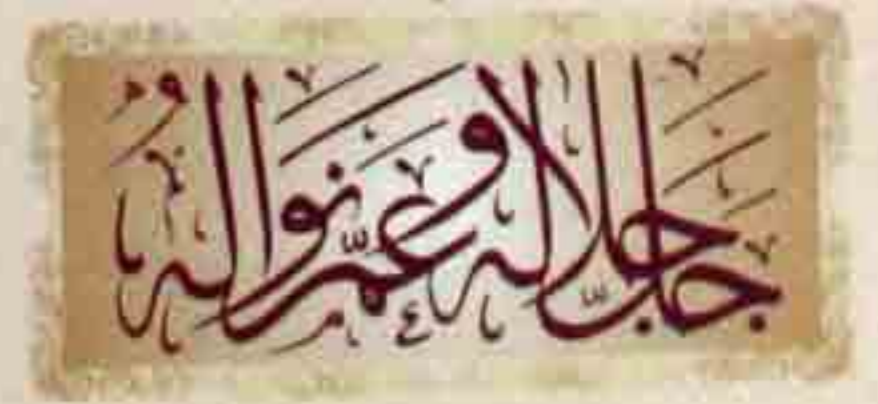 جلّ جلاله وعمّ نواله